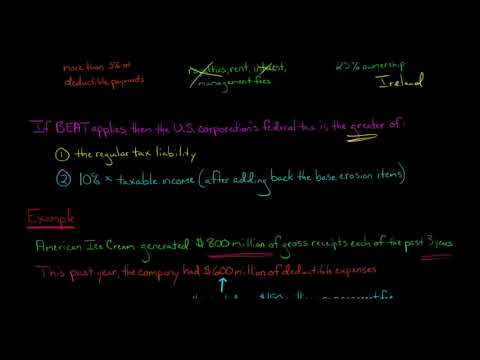 more than 3% of
deductible payments
royalties, rent, interest,
management fees
25% ownership
Ireland
If BEAT applies, then the U.S. corporation's federal tax is the greater of:
① the regular tax liability
② 10% × taxable income (after adding back the base erosion items)
Example
American Ice Cream generated $800 million of gross receipts each of the past 3 years
This past year, the company had $600 million of deductible expenses